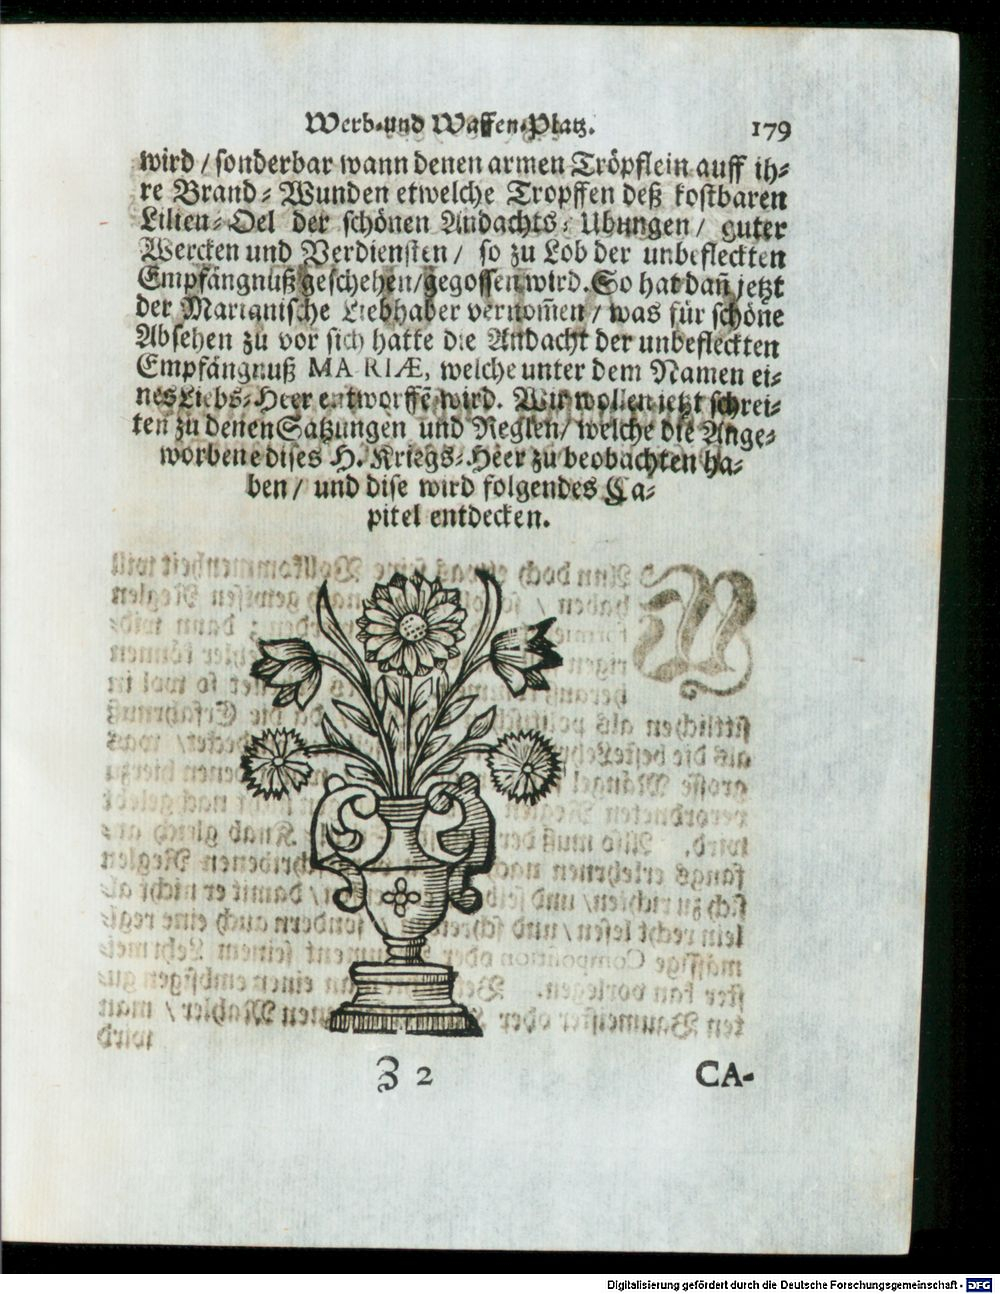 Werb-und Waffen-Platz. 179
wird / sonderbar wann denen armen Tröpflein auff ih-
re Brand-Wunden etwelche Tropffen deß kostbaren
Lilien-Oel der schönen Andachts-Ubungen / guter
Wercken und Verdiensten / so zu Lob der unbefleckten
Empfängnuß geschehen / gegossen wird. So hat dañ jetzt
der Marianische Liebhaber vernom̃en / was für schöne
Absehen zu vor sich hatte die Andacht der unbefleckten
Empfängnuß MARIÆ, welche unter dem Namen ei-
nes Liebs-Heer entworffẽ wird. Wir wollen jetzt schrei-
ten zu denen Satzungen und Reglen / welche die Ange-
worbene dises H. Kriegs-Heer zu beobachten ha-
ben / und dise wird folgendes Ca-
pitel entdecken.
Z 2 CA-
Digitalisierung gefördert durch die Deutsche Forschungsgemeinschaft - DFG